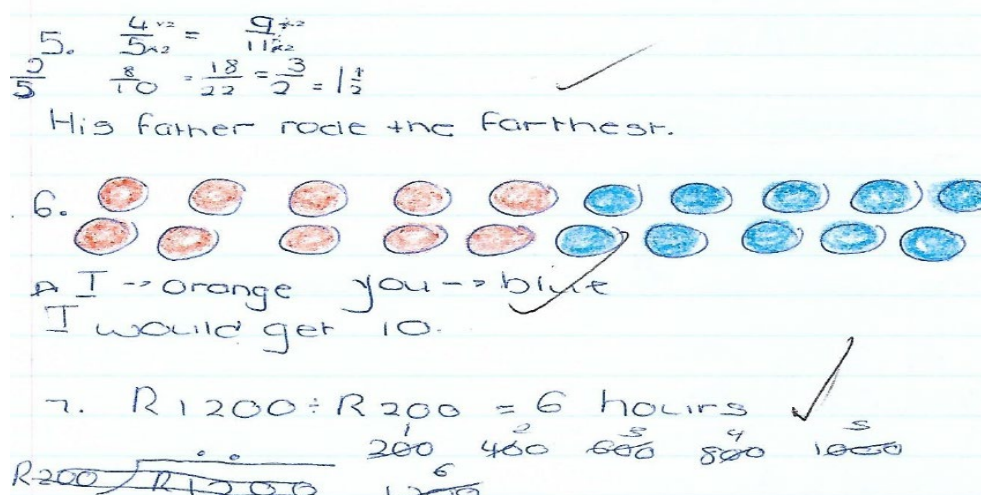 5. 4/5 ×2 ×2 = 9/11 ×2 ×2
8/10 = 18/22 = 3/2 = 1 1/2
His father rode the farthest.
6.
I --> orange you --> blue
I would get 10.
7. R1200 ÷ R200 = 6 hours
1 2 3 4 5
200 400 600 800 1000
6
R200 R1200 1200